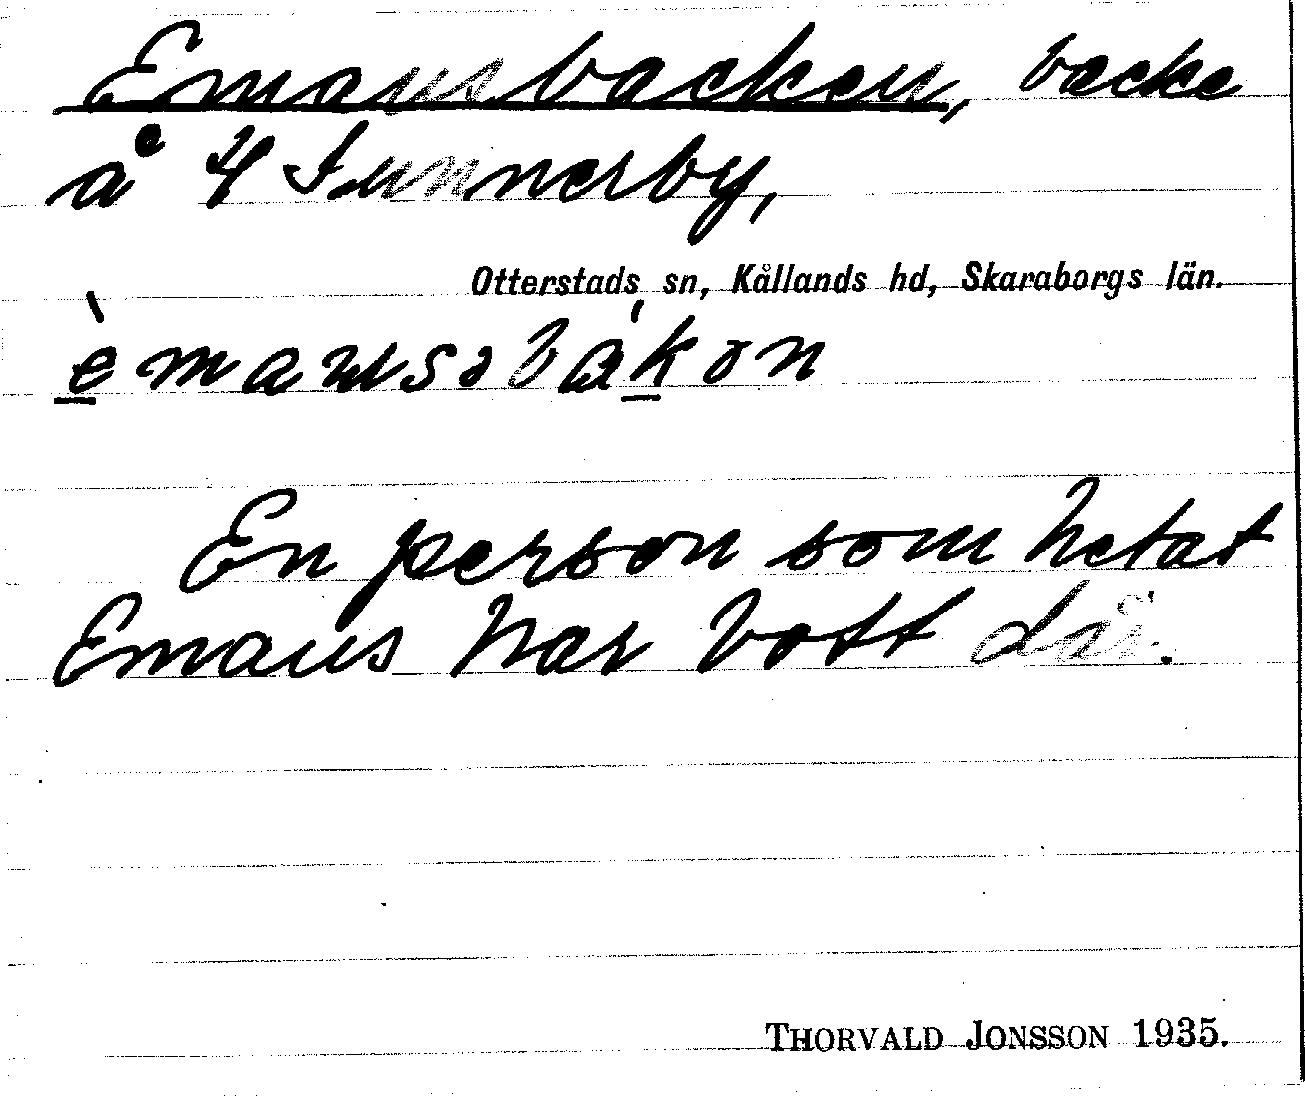 Emausbacken, backe
å 4 Sunnerby,
Otterstads sn, Kållands hd, Skaraborgs län.
èmausəbákən
En person som hetat
Emaus har bott där.
THORVALD JONSSON 1935.